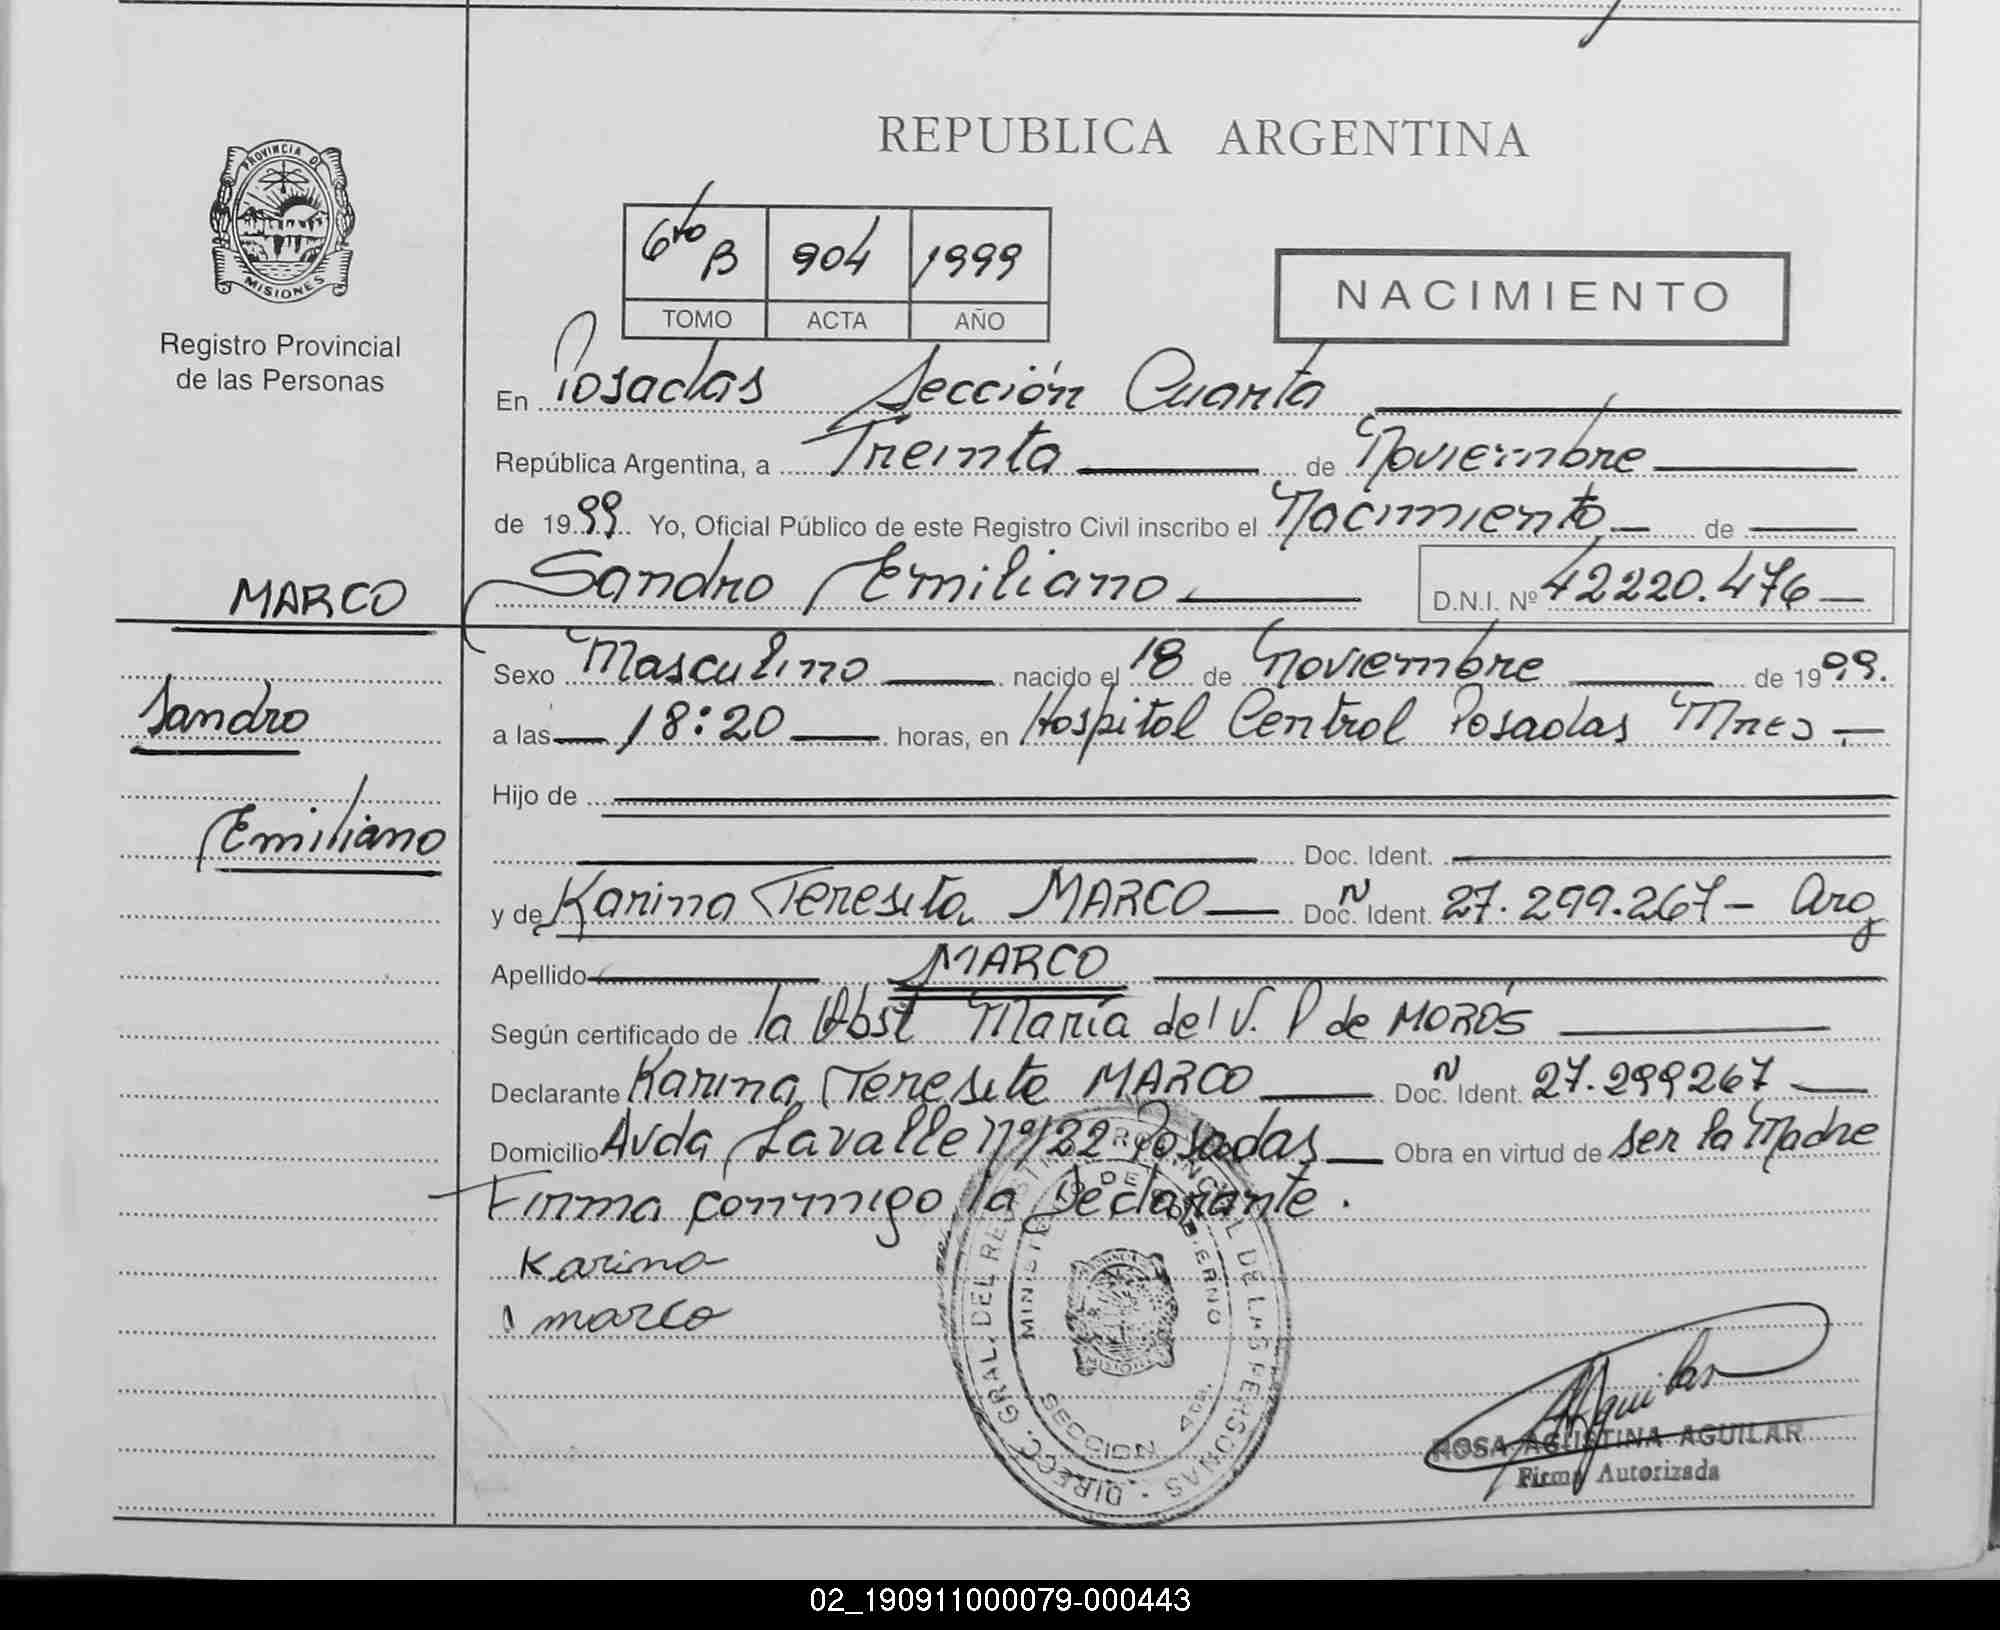 REPUBLICA ARGENTINA
PROVINCIA DE
MISIONES
Registro Provincial
de las Personas
6to B 904 1999
TOMO ACTA AÑO
NACIMIENTO
En Posadas Sección Cuarta
República Argentina, a Treinta de Noviembre
de 1999 Yo, Oficial Público de este Registro Civil inscribo el Nacimiento de
MARCO
Sandro Emiliano D.N.I. Nº 42220.476
Sexo Masculino nacido el 18 de Noviembre de 1999.
Sandro
a las 18:20 horas, en Hospital Central Posadas Mnes
Hijo de
Emiliano
Doc. Ident.
y de Karina Teresita MARCO Doc. N Ident. 27.299.267 - Arg
Apellido MARCO
Según certificado de la Obst María del V. P de MOROS
Declarante Karina Teresita MARCO Doc. N Ident. 27.299267
Domicilio Avda Lavalle Nº 122 Posadas Obra en virtud de ser la Madre
Firma conmigo la Declarante.
Karina
marco
DIRECC. GRAL. DEL REGISTRO PROVINCIAL DE LAS PERSONAS
MINISTERIO DE GOBIERNO
SECCION 4ta.
Aguilar
ROSA AGUSTINA AGUILAR
Firma Autorizada
02_190911000079-000443